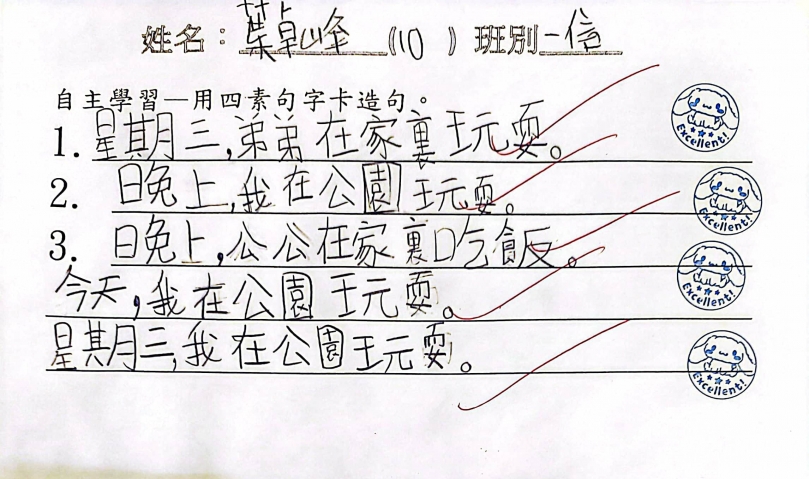 姓名：葉卓峰（10）班別一信
自主學習—用四素句字卡造句。
1. 星期三,弟弟在家裏玩耍。
2. 晚上,我在公園玩耍。
3. 晚上,公公在家裏吃飯。
今天,我在公園玩耍。
星期三,我在公園玩耍。
Excellent!
Excellent!
Excellent!
Excellent!